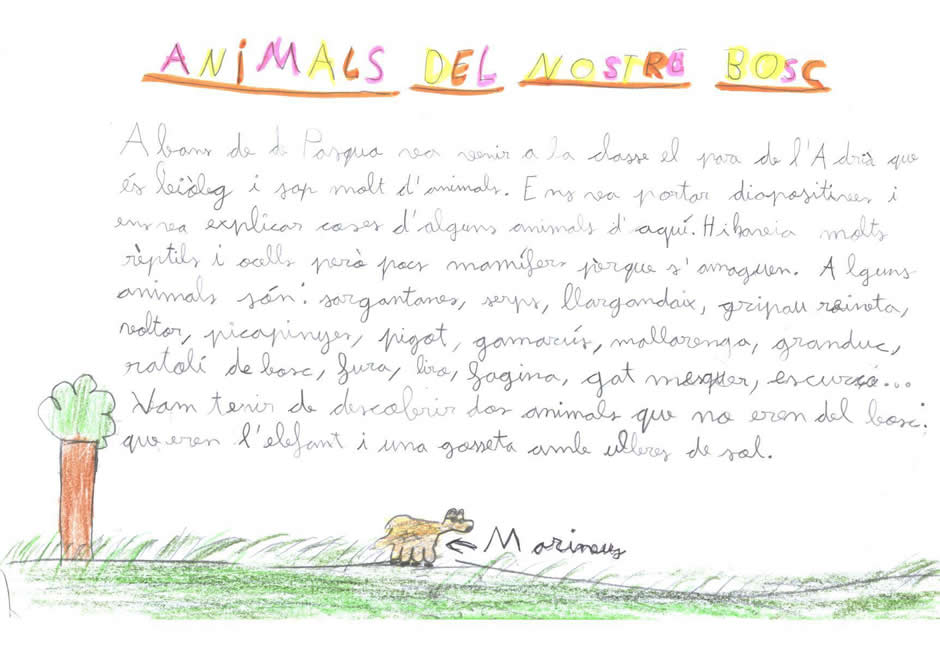 ANIMALS DEL NOSTRE BOSC
Abans de de Pasqua va venir a la classe el para de l'Adrià que
és biòleg i sap molt d'animals. Ens va portar diapositives i
ens va explicar coses d'alguns animals d'aquí. Hi havia molts
rèptils i ocells però pocs mamífers pèrque s'amaguen. Alguns
animals són: sargantanes, serps, llargandaix, gripau reineta,
voltor, picapinyes, pigot, gamarús, mallarenga, granduc,
ratolí de bosc, fura, liró, fagina, gat mesquer, escurçó...
Vam tenir de descobrir dos animals que no eren del bosc:
que eren l'elefant i una gosseta amb ulleres de sol.
Marineus